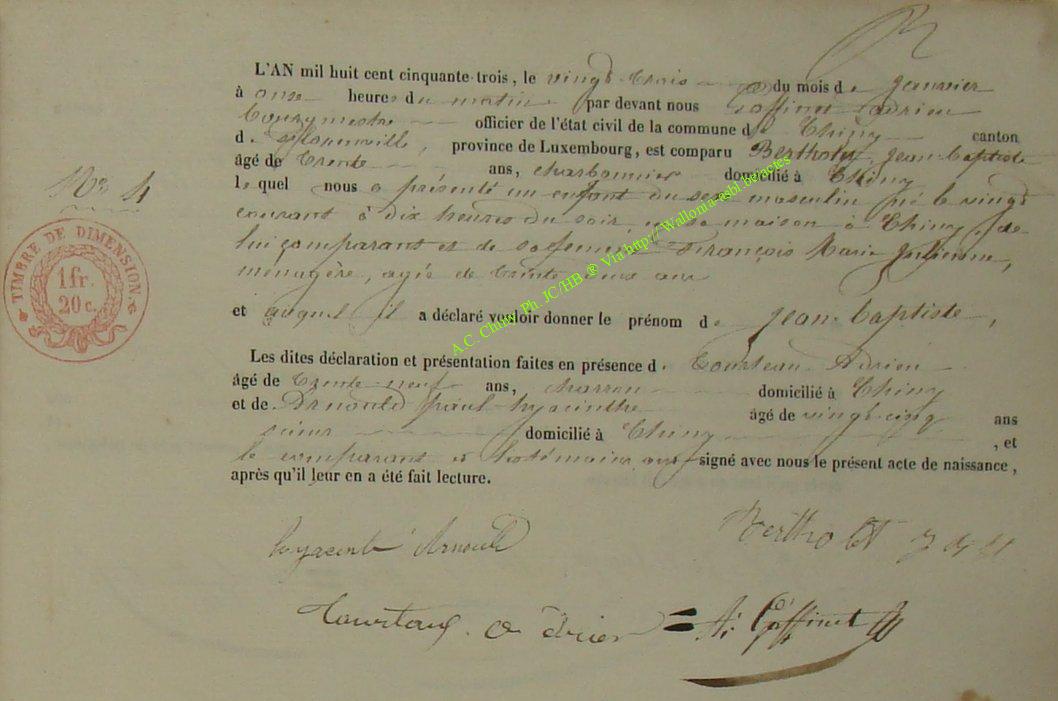 L'AN mil huit cent cinquante-trois, le vingt trois du mois de Janvier
à onze heures du matin par devant nous Goffinet Adrien
Bourgmestre officier de l'état civil de la commune de Chiny canton
d. Florenville, province de Luxembourg, est comparu Bertholet Jean-baptiste
âgé de trente ans, charbonnier domicilié à Chiny
lequel nous a présenté un enfant du sexe masculin né le vingt
courant à dix heures du soir, maison à Chiny, de
lui comparant et de sa femme François Marie Julienne,
ménagère, agée de trente deux ans
et auquel il a déclaré vouloir donner le prénom de Jean-baptiste,
Les dites déclaration et présentation faites en présence d. Adrien
âgé de trente-neuf ans, charron domicilié à Chiny
et de Arnould paul-hyacinthe âgé de vingt-cinq ans
scieur domicilié à Chiny, et
le comparant et les témoins ont signé avec nous le présent acte de naissance,
après qu'il leur en a été fait lecture.
No 4
TIMBRE DE DIMENSION
1 fr.
20 c.
A.C. Chiny Ph. JC/HB ® Via http://Wallonia-asbl.be/actes
hyacinte Arnould
Bertholet
A. Goffinet